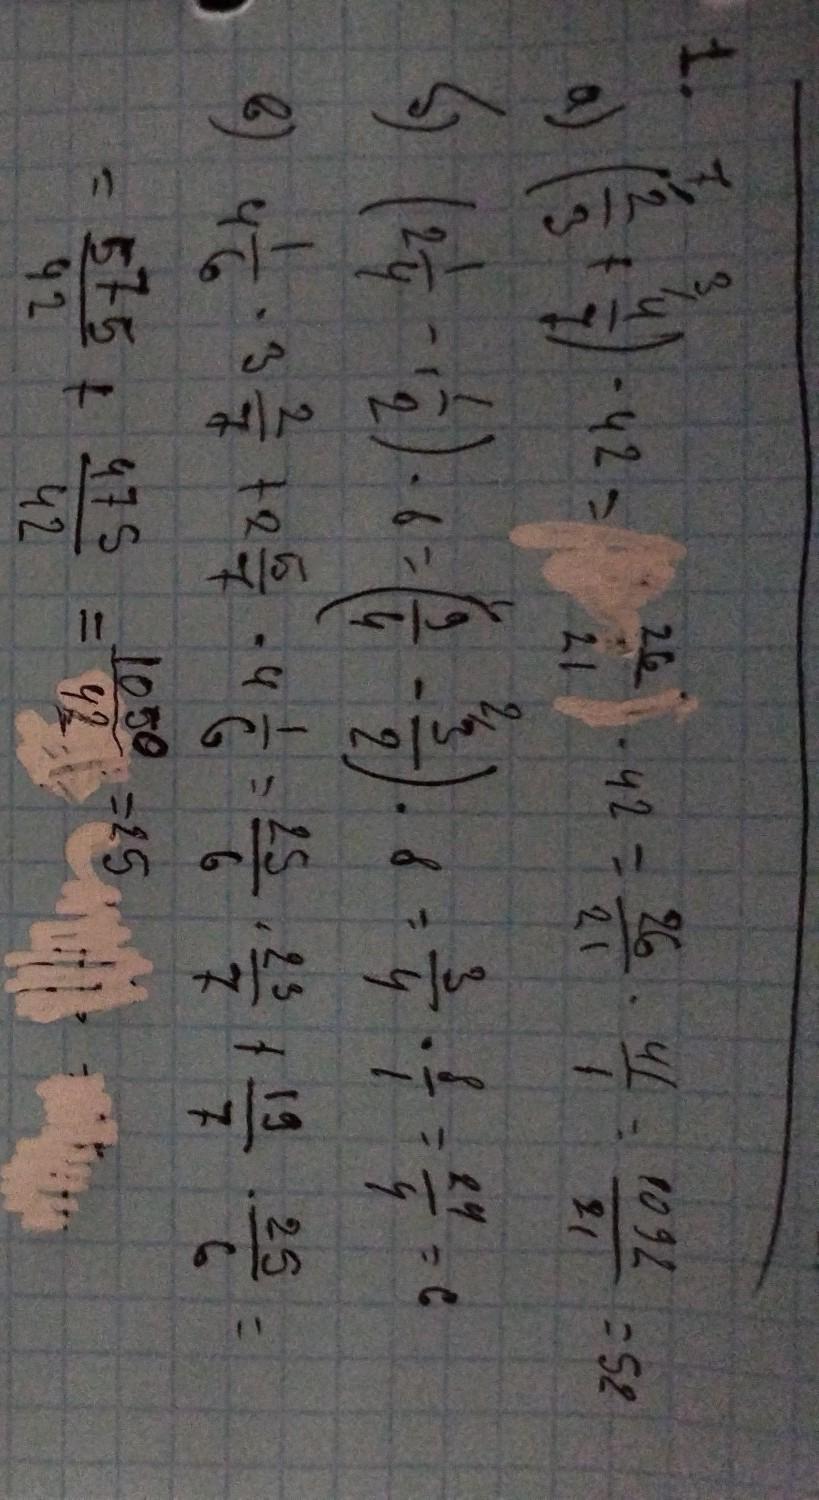 1.
а) (2/3 + 4/7) · 42 = 26/21 · 42 = 26/21 · 42/1 = 1092/21 = 52
б) (2 1/4 - 1 1/2) · 8 = (9/4 - 3/2) · 8 = 3/4 · 8/1 = 24/4 = 6
в) 4 1/6 · 3 2/7 + 2 5/7 · 4 1/6 = 25/6 · 23/7 + 19/7 · 25/6 =
= 575/42 + 475/42 = 1050/42 = 25